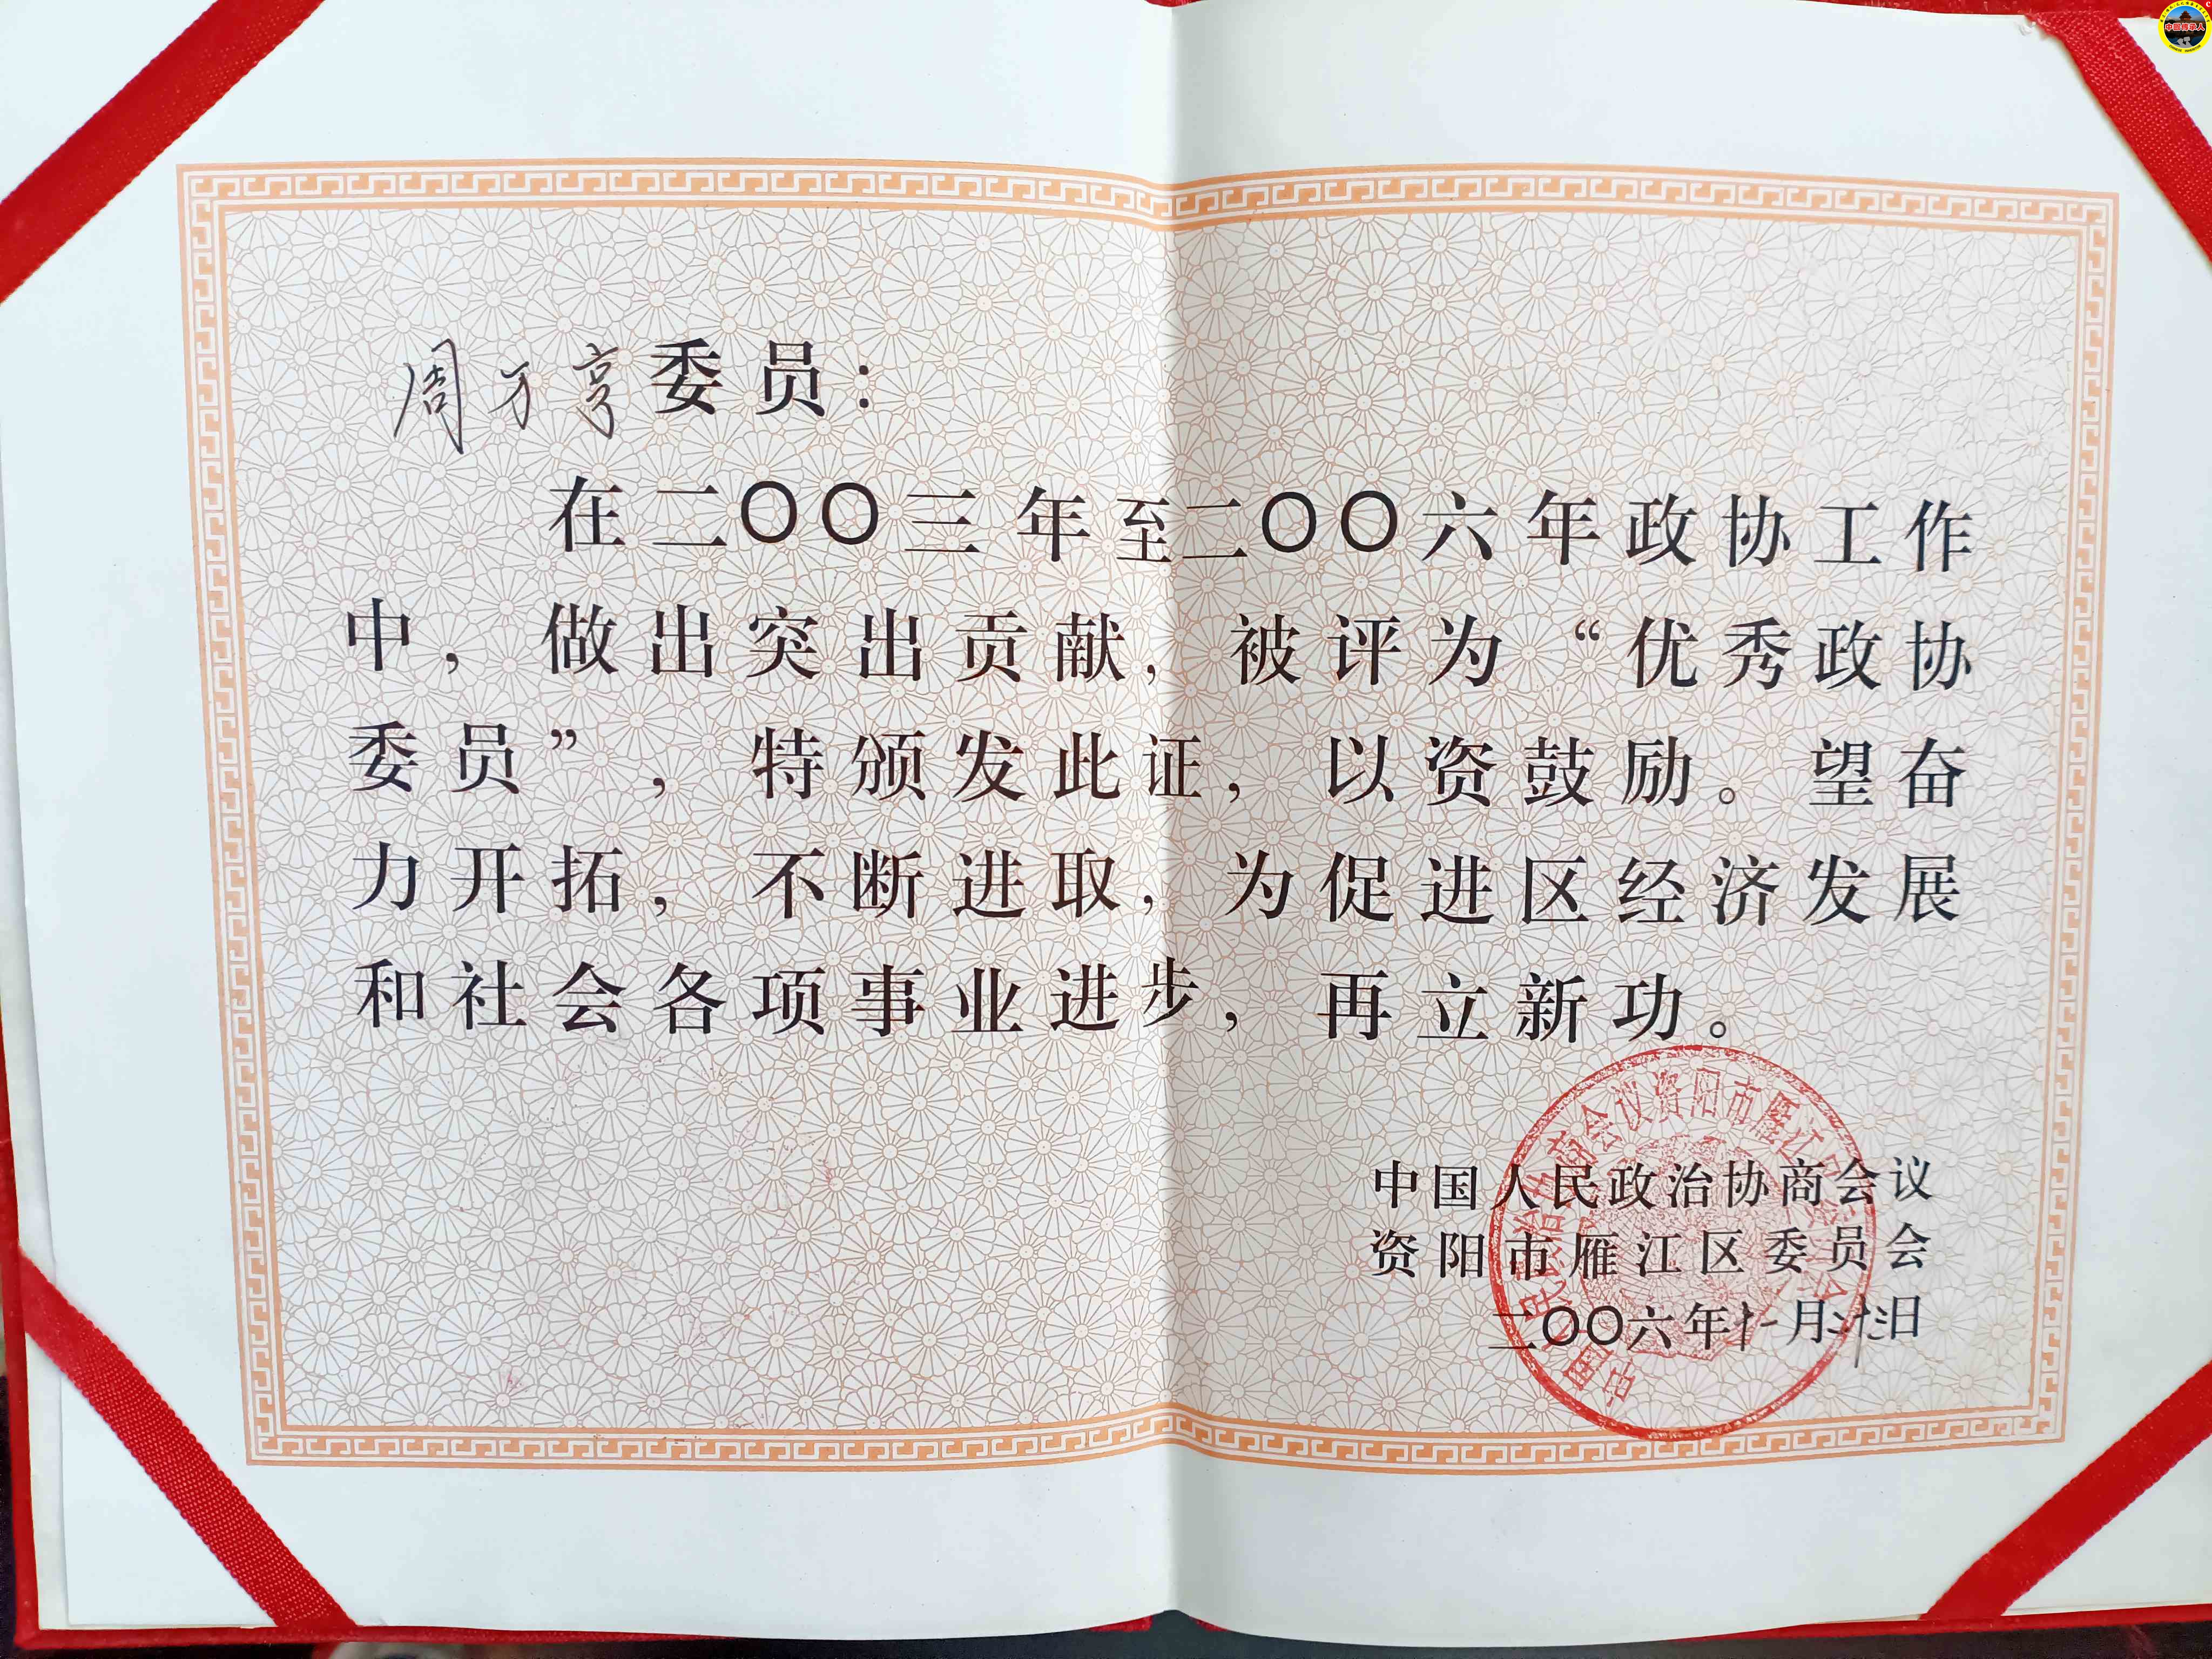 周万亨委员：
在二〇〇三年至二〇〇六年政协工作
中，做出突出贡献，被评为“优秀政协
委员”，特颁发此证，以资鼓励。望奋
力开拓，不断进取，为促进区经济发展
和社会各项事业进步，再立新功。
中国人民政治协商会议
资阳市雁江区委员会
二〇〇六年十一月 日